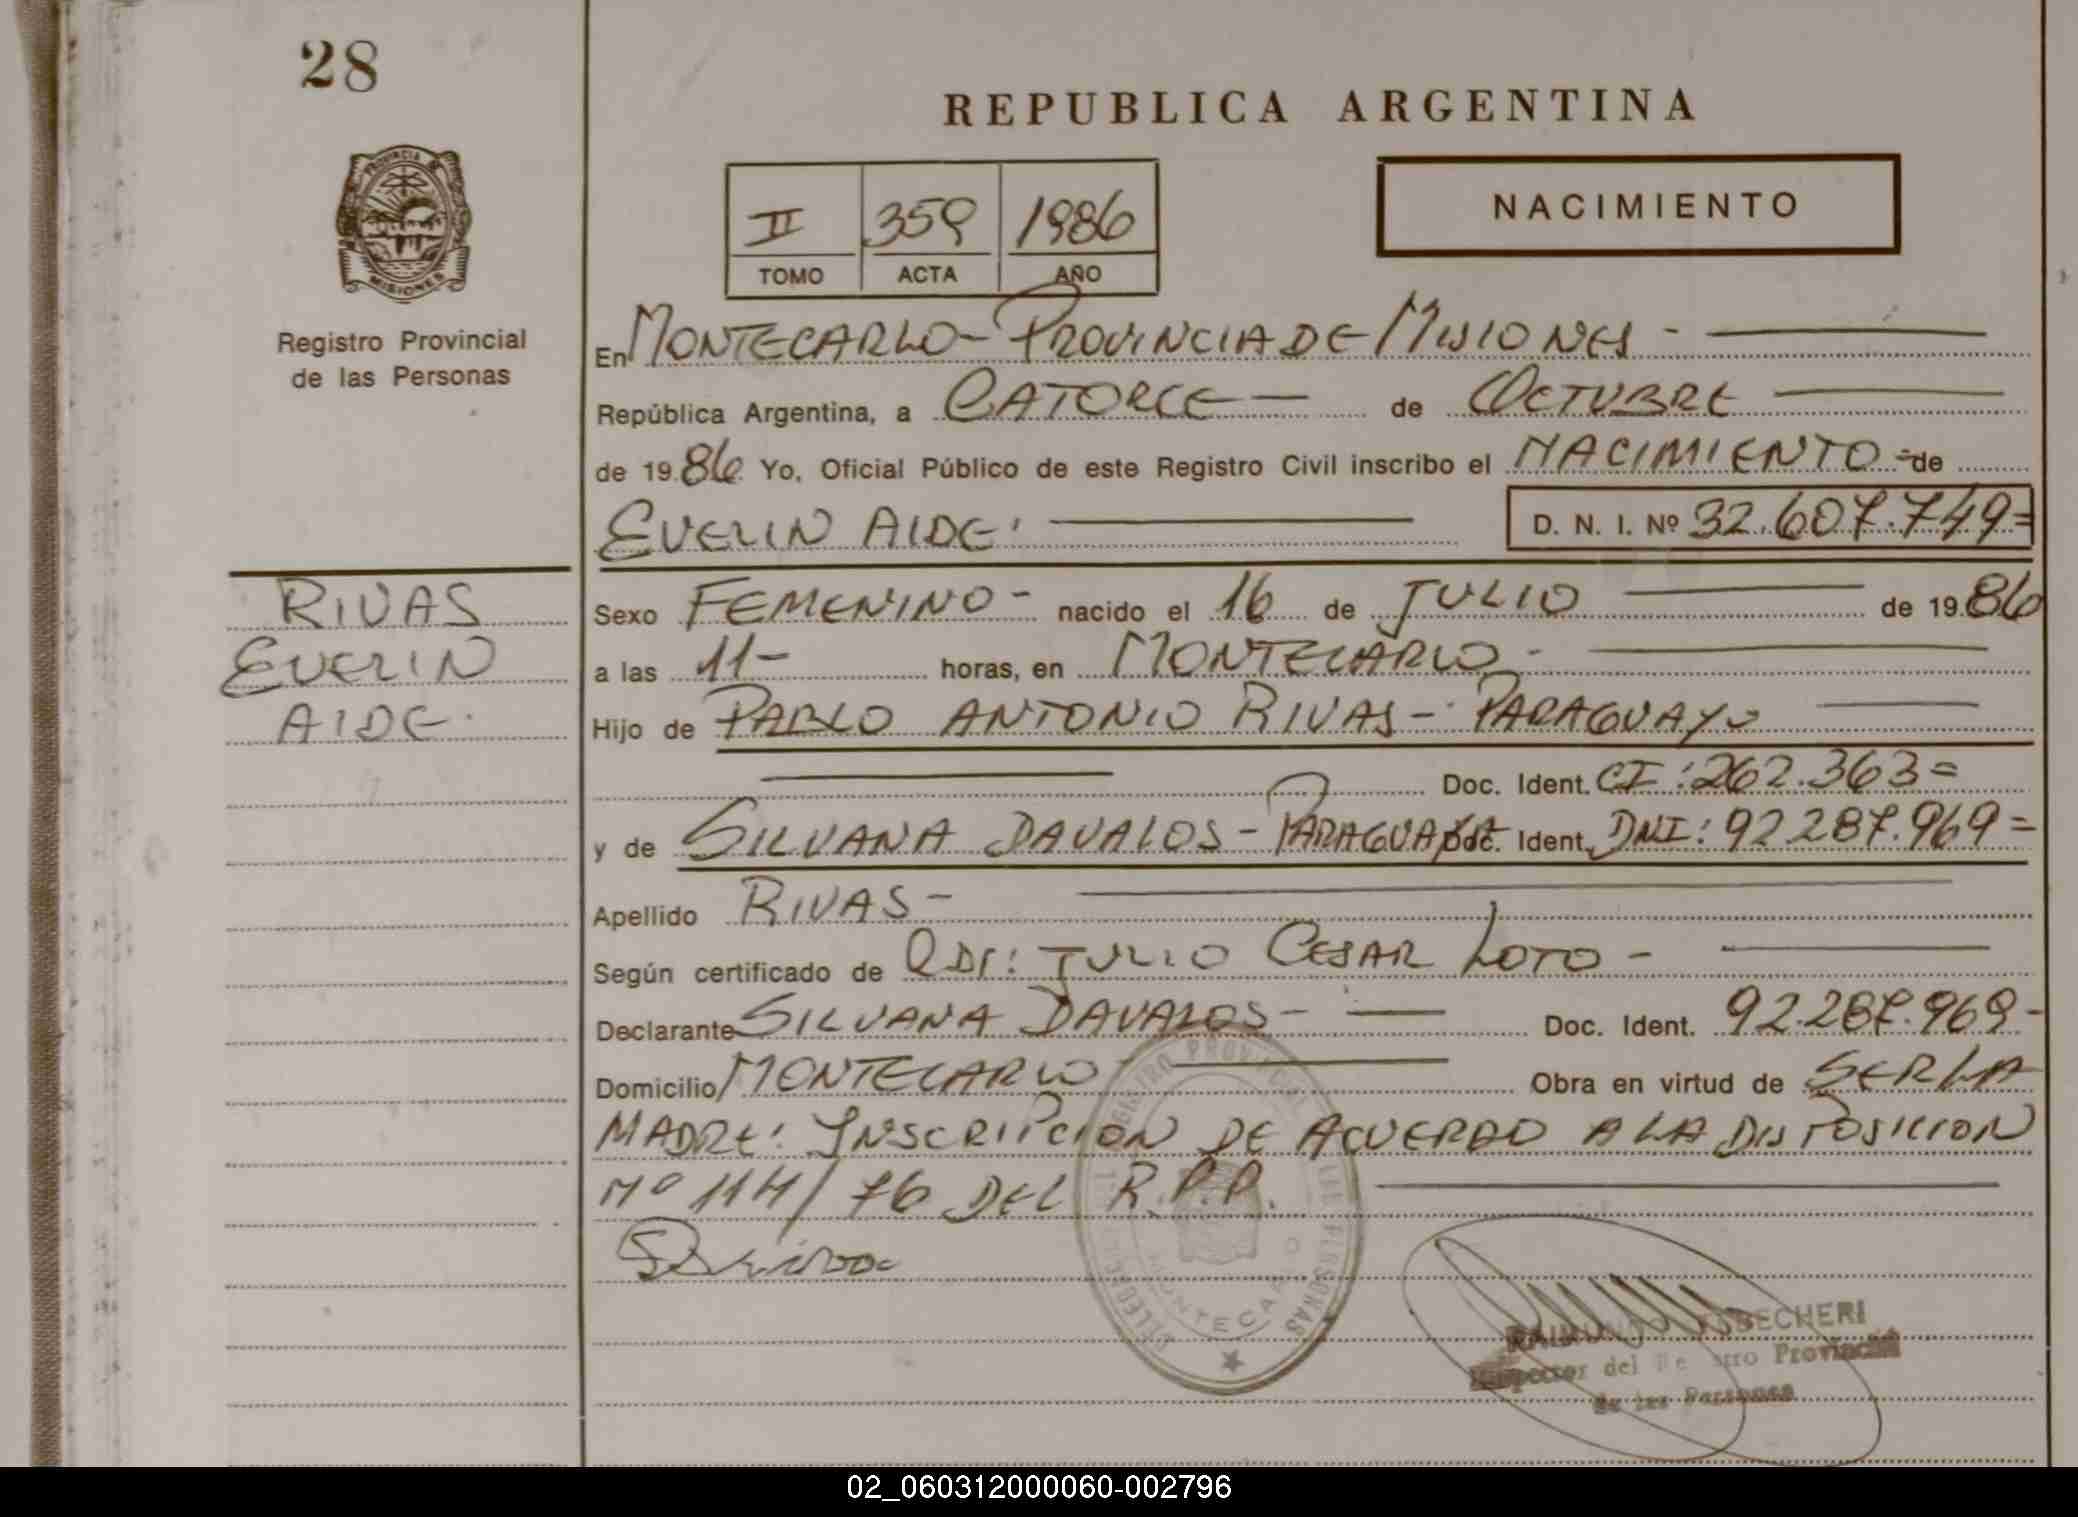 28
REPUBLICA ARGENTINA
PROVINCIA DE
MISIONES
Registro Provincial
de las Personas
II 359 1986
TOMO ACTA AÑO
NACIMIENTO
En MONTECARLO - PROVINCIA DE MISIONES -
República Argentina, a CATORCE - de OCTUBRE
de 1986 Yo, Oficial Público de este Registro Civil inscribo el NACIMIENTO - de
EVELIN AIDE. D. N. I. Nº 32.607.749=
RIVAS
EVELIN
AIDE.
Sexo FEMENINO - nacido el 16 de JULIO de 1986
a las 11 - horas, en MONTECARLO -
Hijo de PABLO ANTONIO RIVAS - PARAGUAYO
Doc. Ident. CI: 262.363=
y de SILVANA DAVALOS - PARAGUAYA Doc. Ident. DNI: 92.287.969=
Apellido RIVAS -
Según certificado de JULIO CESAR LOTO -
Declarante SILVANA DAVALOS - Doc. Ident. 92.287.969 -
Domicilio MONTECARLO - Obra en virtud de SER LA
MADRE: INSCRIPCION DE ACUERDO A LA DISPOSICION
Nº 114/76 DEL R.P.P.
REGISTRO PROVINCIAL DE LAS PERSONAS
MONTECARLO
Inspector del Registro Provincial
de las Personas
02_060312000060-002796